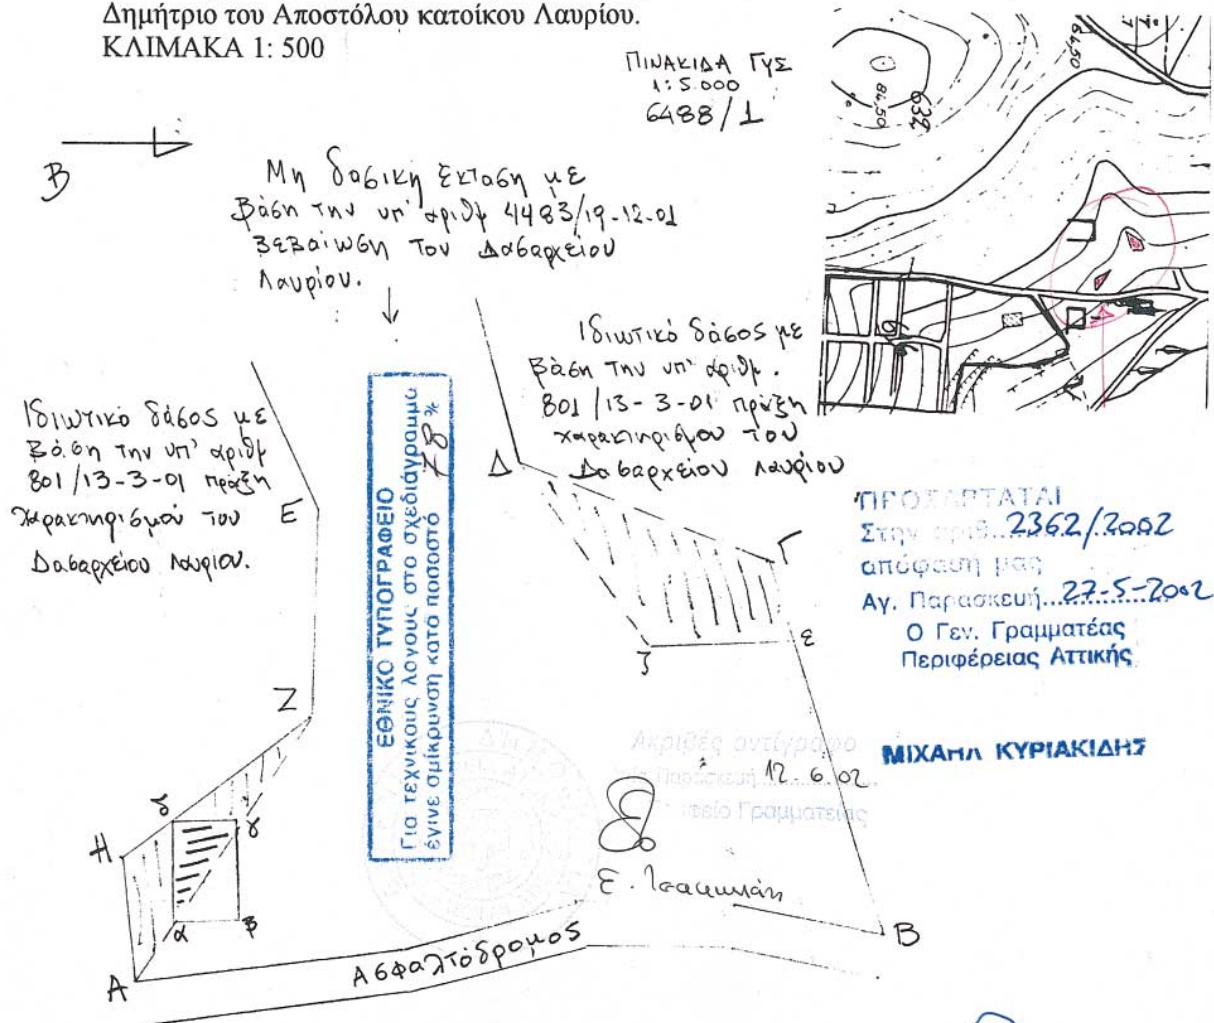 Δημήτριο του Αποστόλου κατοίκου Λαυρίου.
ΚΛΙΜΑΚΑ 1: 500
ΠΙΝΑΚΙΔΑ ΓΥΣ
1:5.000
6488/1
Β
Μη δασική έκταση με
βάση την υπ' αριθμ 4483/19-12-01
βεβαίωση του Δασαρχείου
Λαυρίου.
Ιδιωτικό δάσος με
βάση την υπ' αριθμ.
801/13-3-01 πράξη
χαρακτηρισμού του
Δασαρχείου Λαυρίου
Ιδιωτικό δάσος με
βάση την υπ' αριθμ
801/13-3-01 πράξη
χαρακτηρισμού του
Δασαρχείου Λαυρίου.
ΕΘΝΙΚΟ ΤΥΠΟΓΡΑΦΕΙΟ
Για τεχνικους λογους στο σχεδιάγραμμα
έγινε σμίκρυνση κατά ποσοστό 78 %
84,50
632
64,50
Δ
Γ
Ε
Ζ
ε
ζ
ΠΡΟΣΑΡΤΑΤΑΙ
Στην αριθ. 2362/2002
απόφαση μας
Αγ. Παρασκευή 27-5-2002
Ο Γεν. Γραμματέας
Περιφέρειας Αττικής
ΜΙΧΑΗΛ ΚΥΡΙΑΚΙΔΗΣ
Ακριβές αντίγραφο
Παρασκευή 12.6.02
Γραμματείας
Η
δ
γ
α
β
Α
Β
Ασφαλτόδρομος